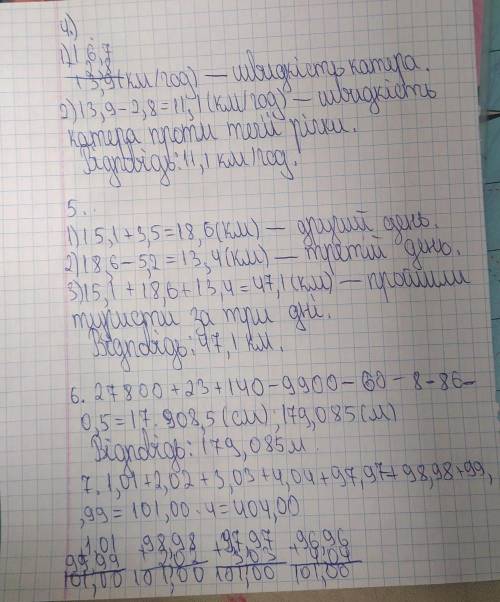 4.)
1) 16,7
2,8
13,9 (км/год) — швидкість катера.
2) 13,9-2,8=11,1 (км/год) — швидкість
катера проти течії річки.
Відповідь: 11,1 км/год.
5..
1) 15,1+3,5=18,6 (км) — другий день.
2) 18,6-5,2=13,4 (км) — третій день.
3) 15,1+18,6+13,4=47,1 (км) — пройшли
туристи за три дні.
Відповідь: 47,1 км.
6. 27800+23+140-9900-60-8-86-
0,5=17.908,5 (см); 179,085 (м)
Відповідь: 179,085м.
7. 1,01+2,02+3,03+4,04+97,97+98,98+99,
,99=101,00·4=404,00
1,01 +98,98 +97,97 +96,96
99,99 2,02 3,03 4,04
101,00 101,00 101,00 101,00